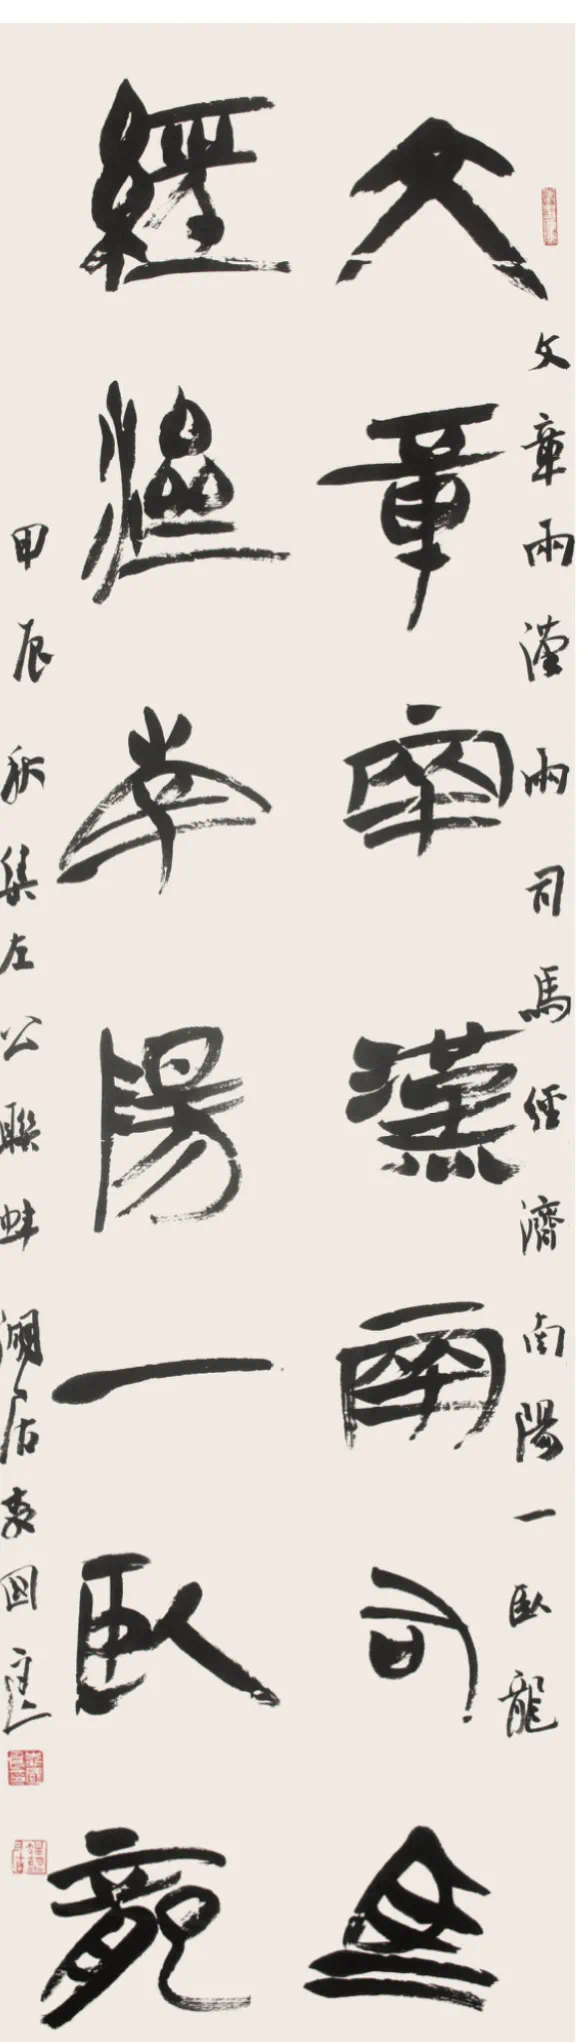 文章兩漢兩司馬經濟南陽一臥龍
文章兩漢兩司馬
經濟南陽一臥龍
甲辰秋集左公聯蚌湖居袁國